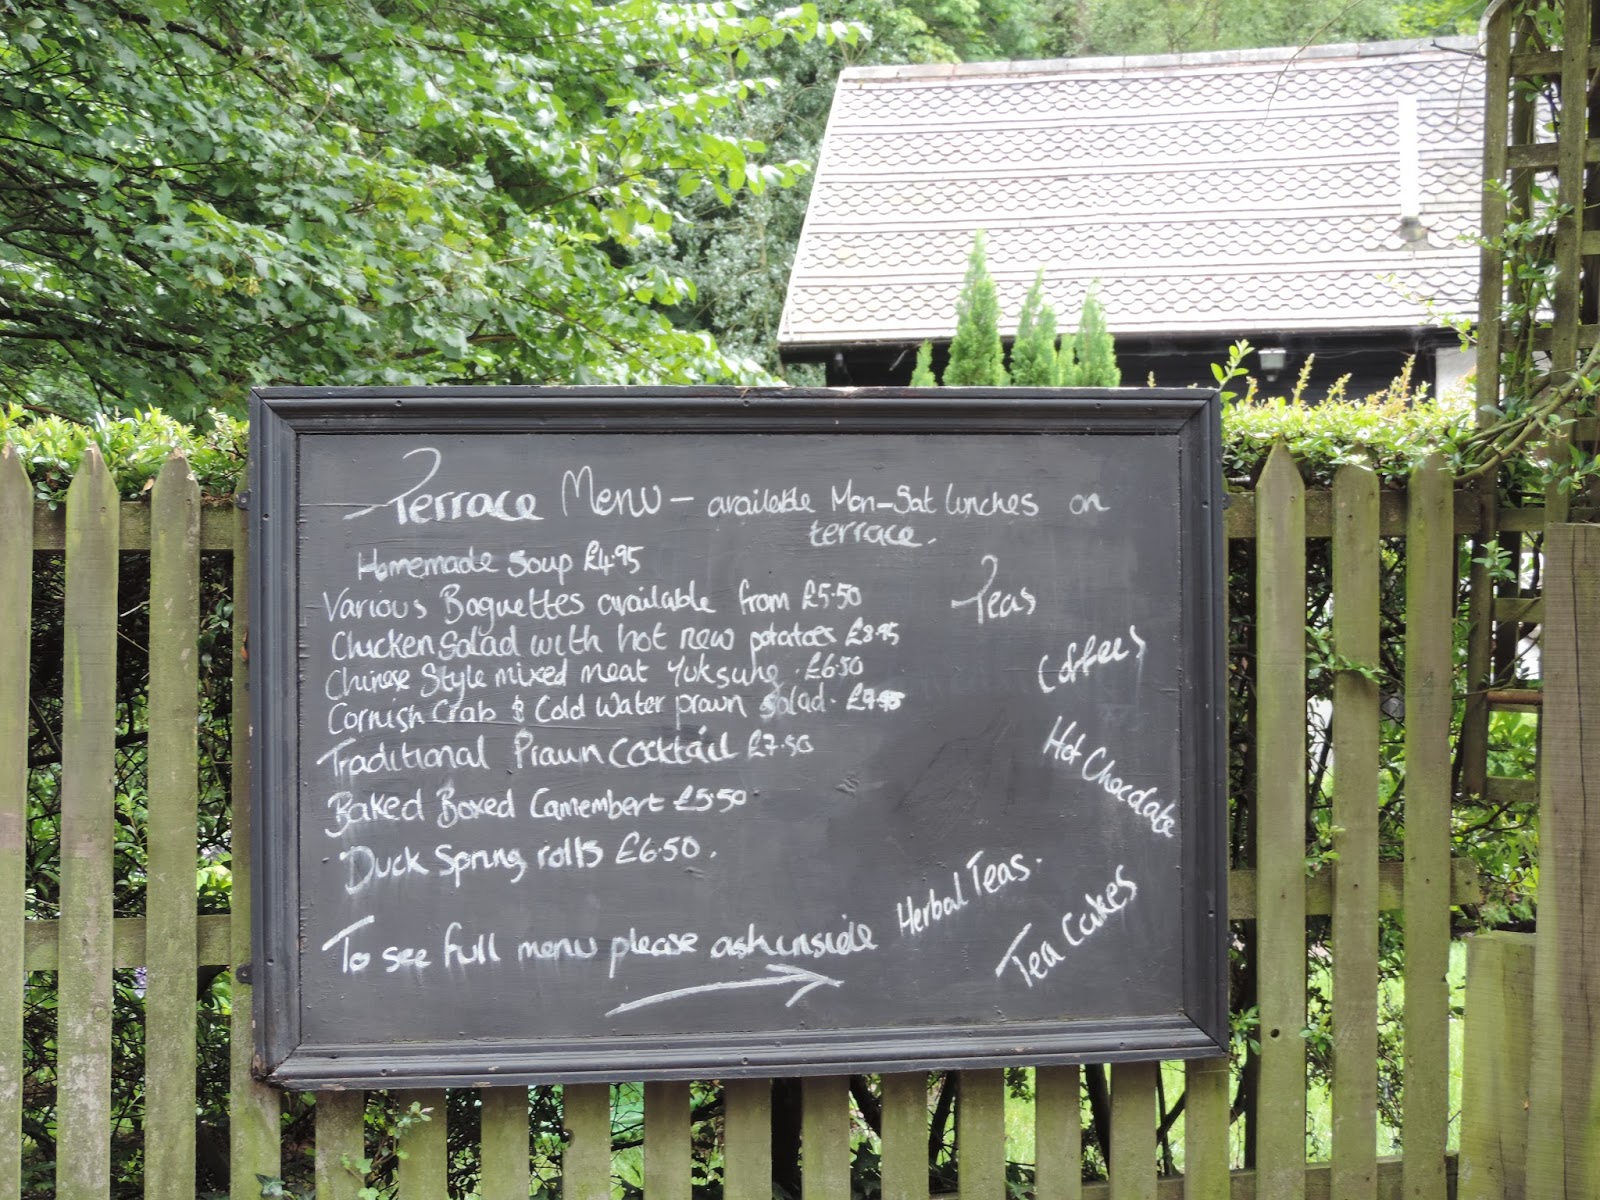 Terrace Menu – available Mon-Sat lunches on
terrace.
Homemade Soup £4.95
Various Baguettes available from £5.50
Chicken Salad with hot new potatoes £8.95
Chinese Style mixed meat Yuk sung . £6.50
Cornish Crab & Cold Water prawn salad. £9.95
Traditional Prawn Cocktail £7.50
Baked Boxed Camembert £5.50
Duck Spring rolls £6.50 .
To see full menu please ask inside
Teas
Coffees
Hot Chocolate
Herbal Teas.
Tea Cakes